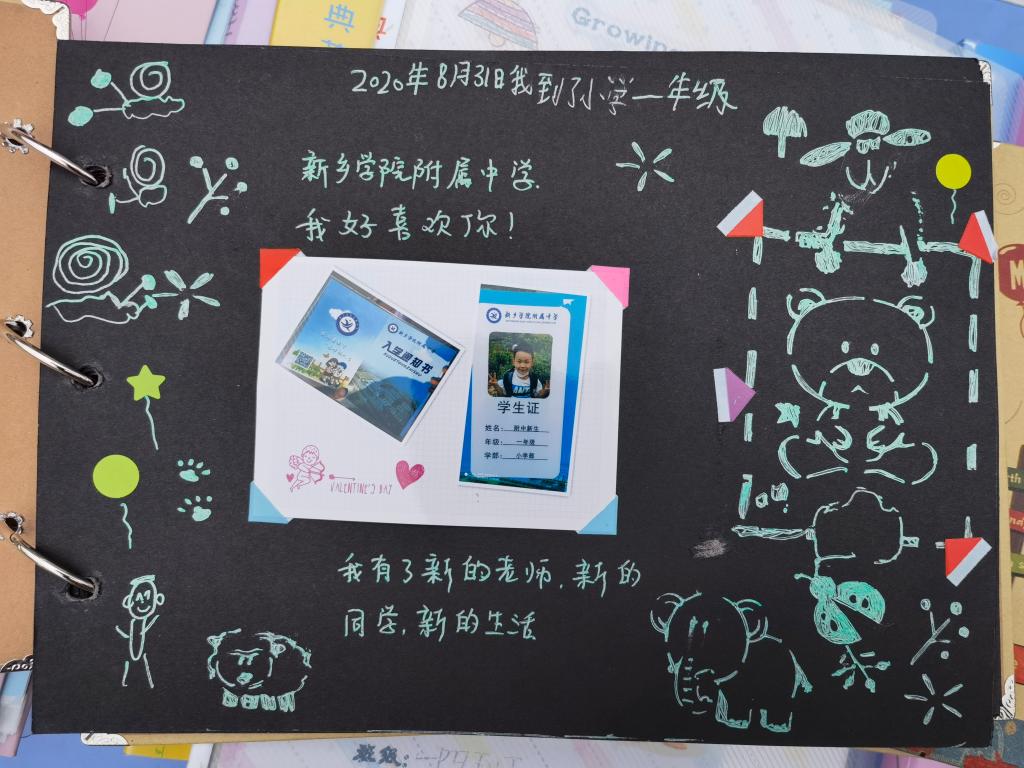 Growing
典
2020年8月31日我到了小学一年级
新乡学院附属中学
我好喜欢你！
新乡学院附属中学
入学通知书
新乡学院附属中学
学生证
姓名：附中新生
年级：一年级
学部：小学部
VALENTINE'S DAY
我有了新的老师，新的
同学，新的生活
班级：